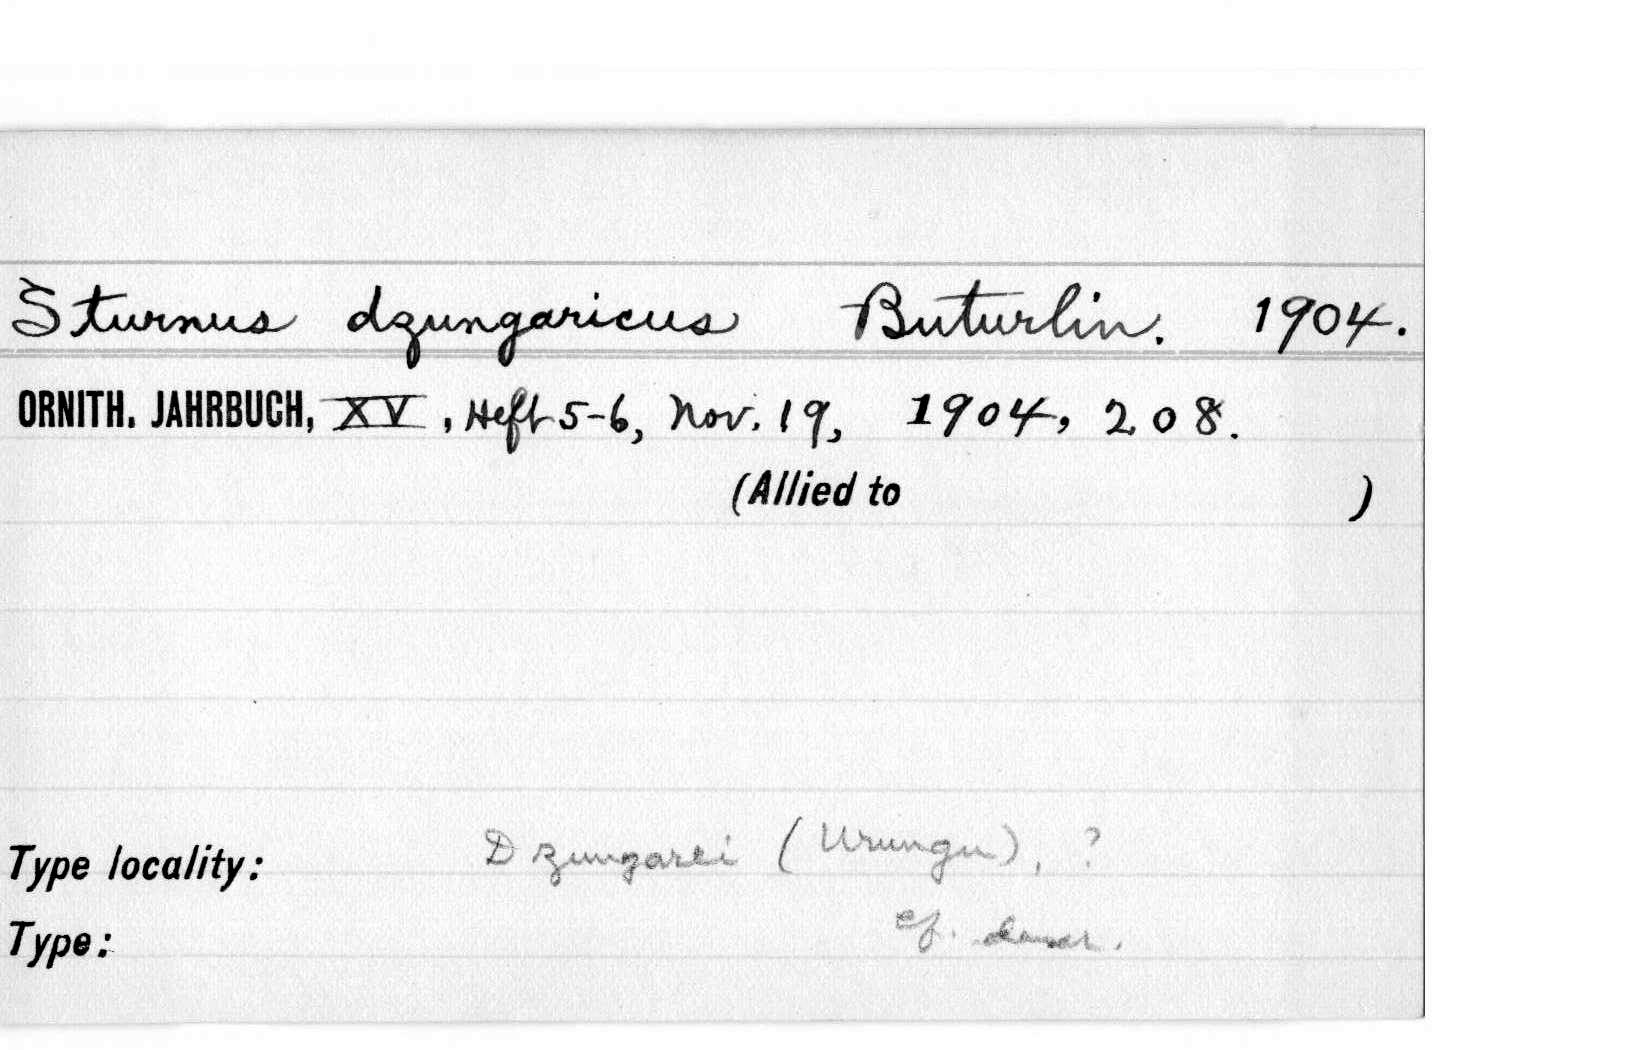 Sturnus dzungaricus Buturlin. 1904.
ORNITH. JAHRBUCH, XV, Heft 5-6, Nov. 19, 1904, 208.
(Allied to )
Type locality: Dzungarei (Urungu), ?
Type: cf. descr.